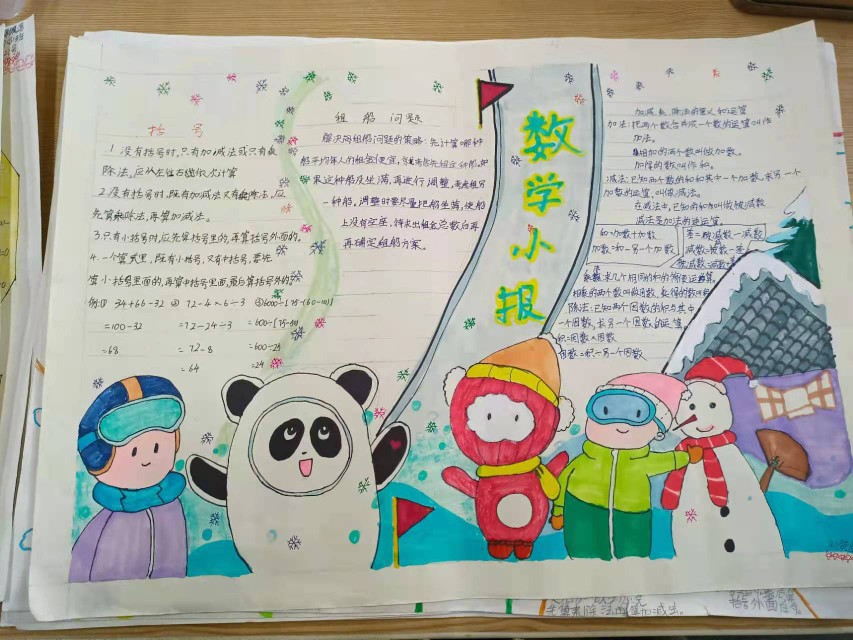 括号
1.没有括号时,只有加减法或只有乘
除法,应从左往右依次计算
2.没有括号时,既有加减法又有乘除法,应
先算乘除法,再算加减法。
3.只有小括号时,应先算括号里的,再算括号外面的。
4.一个算式里,既有小括号,又有中括号,要先
算小括号里面的,再算中括号里面,最后算括号外的
例① 34+66-32 ② 72-4×6÷3 ③600-[75-(60-10)]
=100-32 =72-24÷3 =600-[75-50]
=68 =72-8 =600-25
=64 =24
租船问题
解决问租船问题的策略:先计算哪种
船平均每人的租金便宜,
果这种船没坐满,再进行调整,
一种船,调整时要尽量把船坐满,使船
上没有空座,
再确定租船方案。
数学小报
加减乘、除法的意义和运算
加法:把两个数合并成一个数的运算叫作
加法。
相加的两个数叫做加数。
加得的数叫作和。
减法:已知两个数的和和其中一个加数,求另一个
加数的运算,叫做减法。
在减法中,已知的和叫做被减数
减法是加法的逆运算。
和=加数+加数
加数=和-另一个加数
差=被减数-减数
减数=被减数-差
被减数=减数+
乘数求几个相同的和的简便运算。
相乘的两个数叫做因数,乘得的数叫
除法:已知两个因数的积与其中
一个因数,求另一个因数的运算
积=因数×因数
因数=积÷另一个因数